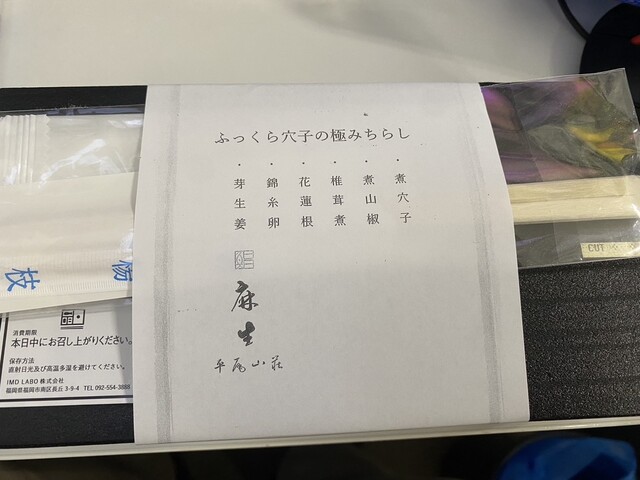 ふっくら穴子の極みちらし
・煮穴子
・煮山椒
・椎茸煮
・花蓮根
・錦糸卵
・芽生姜
麻生
平尾山荘
楊枝
消費期限
本日中にお召し上がりください。
保存方法
直射日光及び高温多湿を避けてください。
IMD LABO 株式会社
福岡県福岡市南区長丘 3-9-4 TEL 092-554-3888
CUT